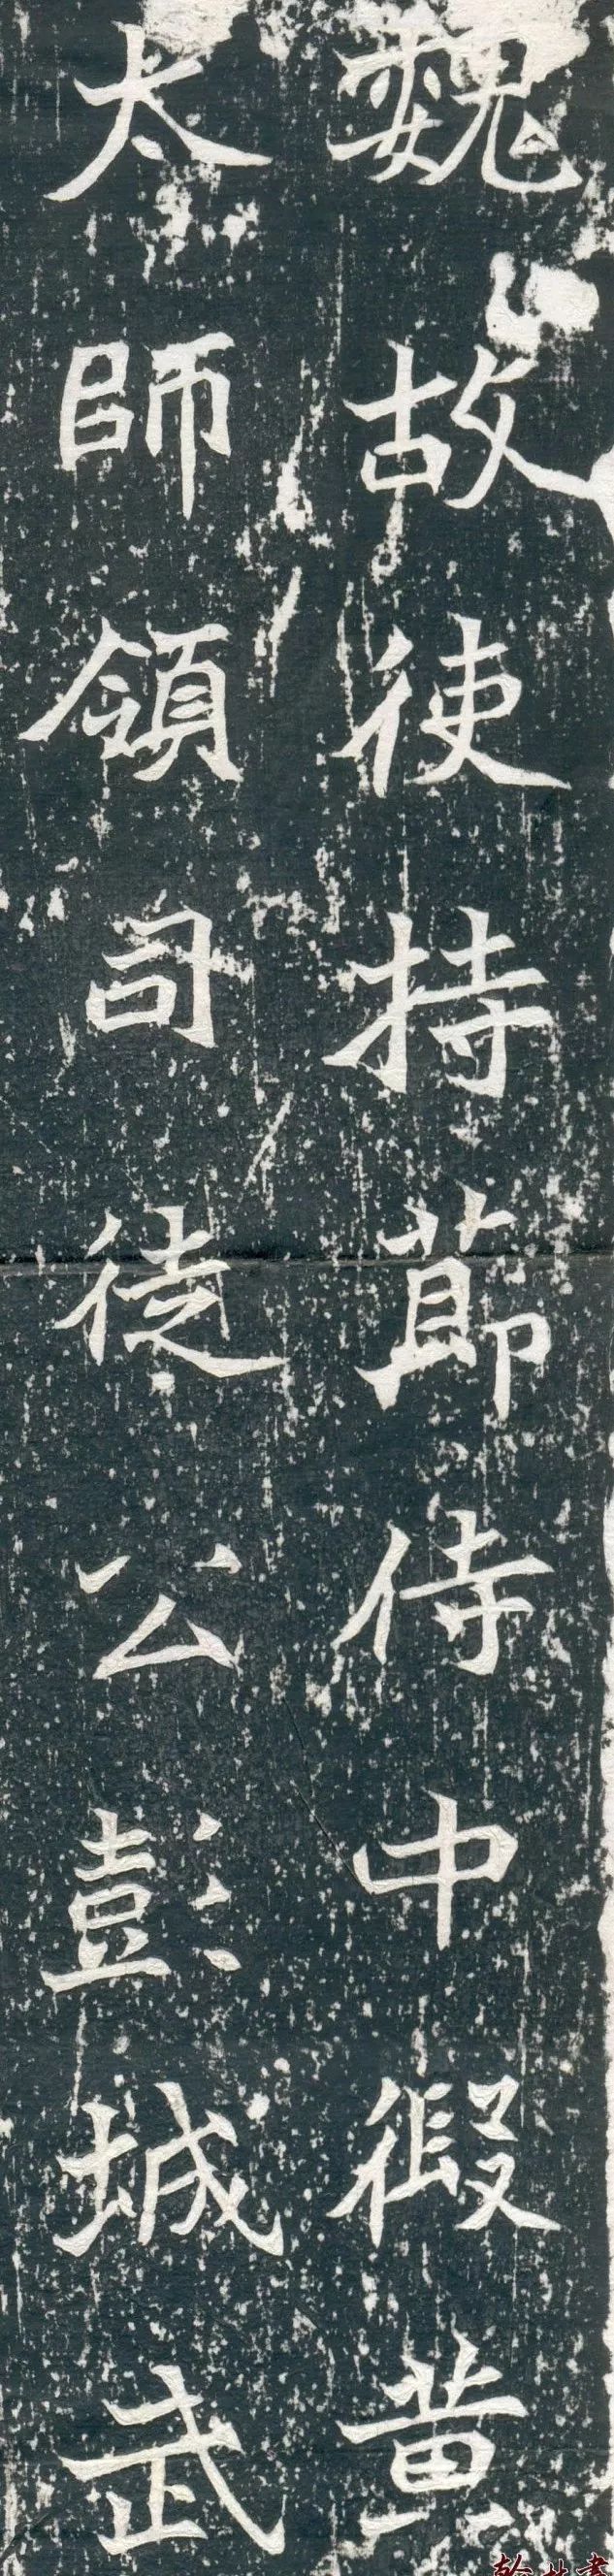 魏故使持節侍中假黄
太師領司徒公彭城武